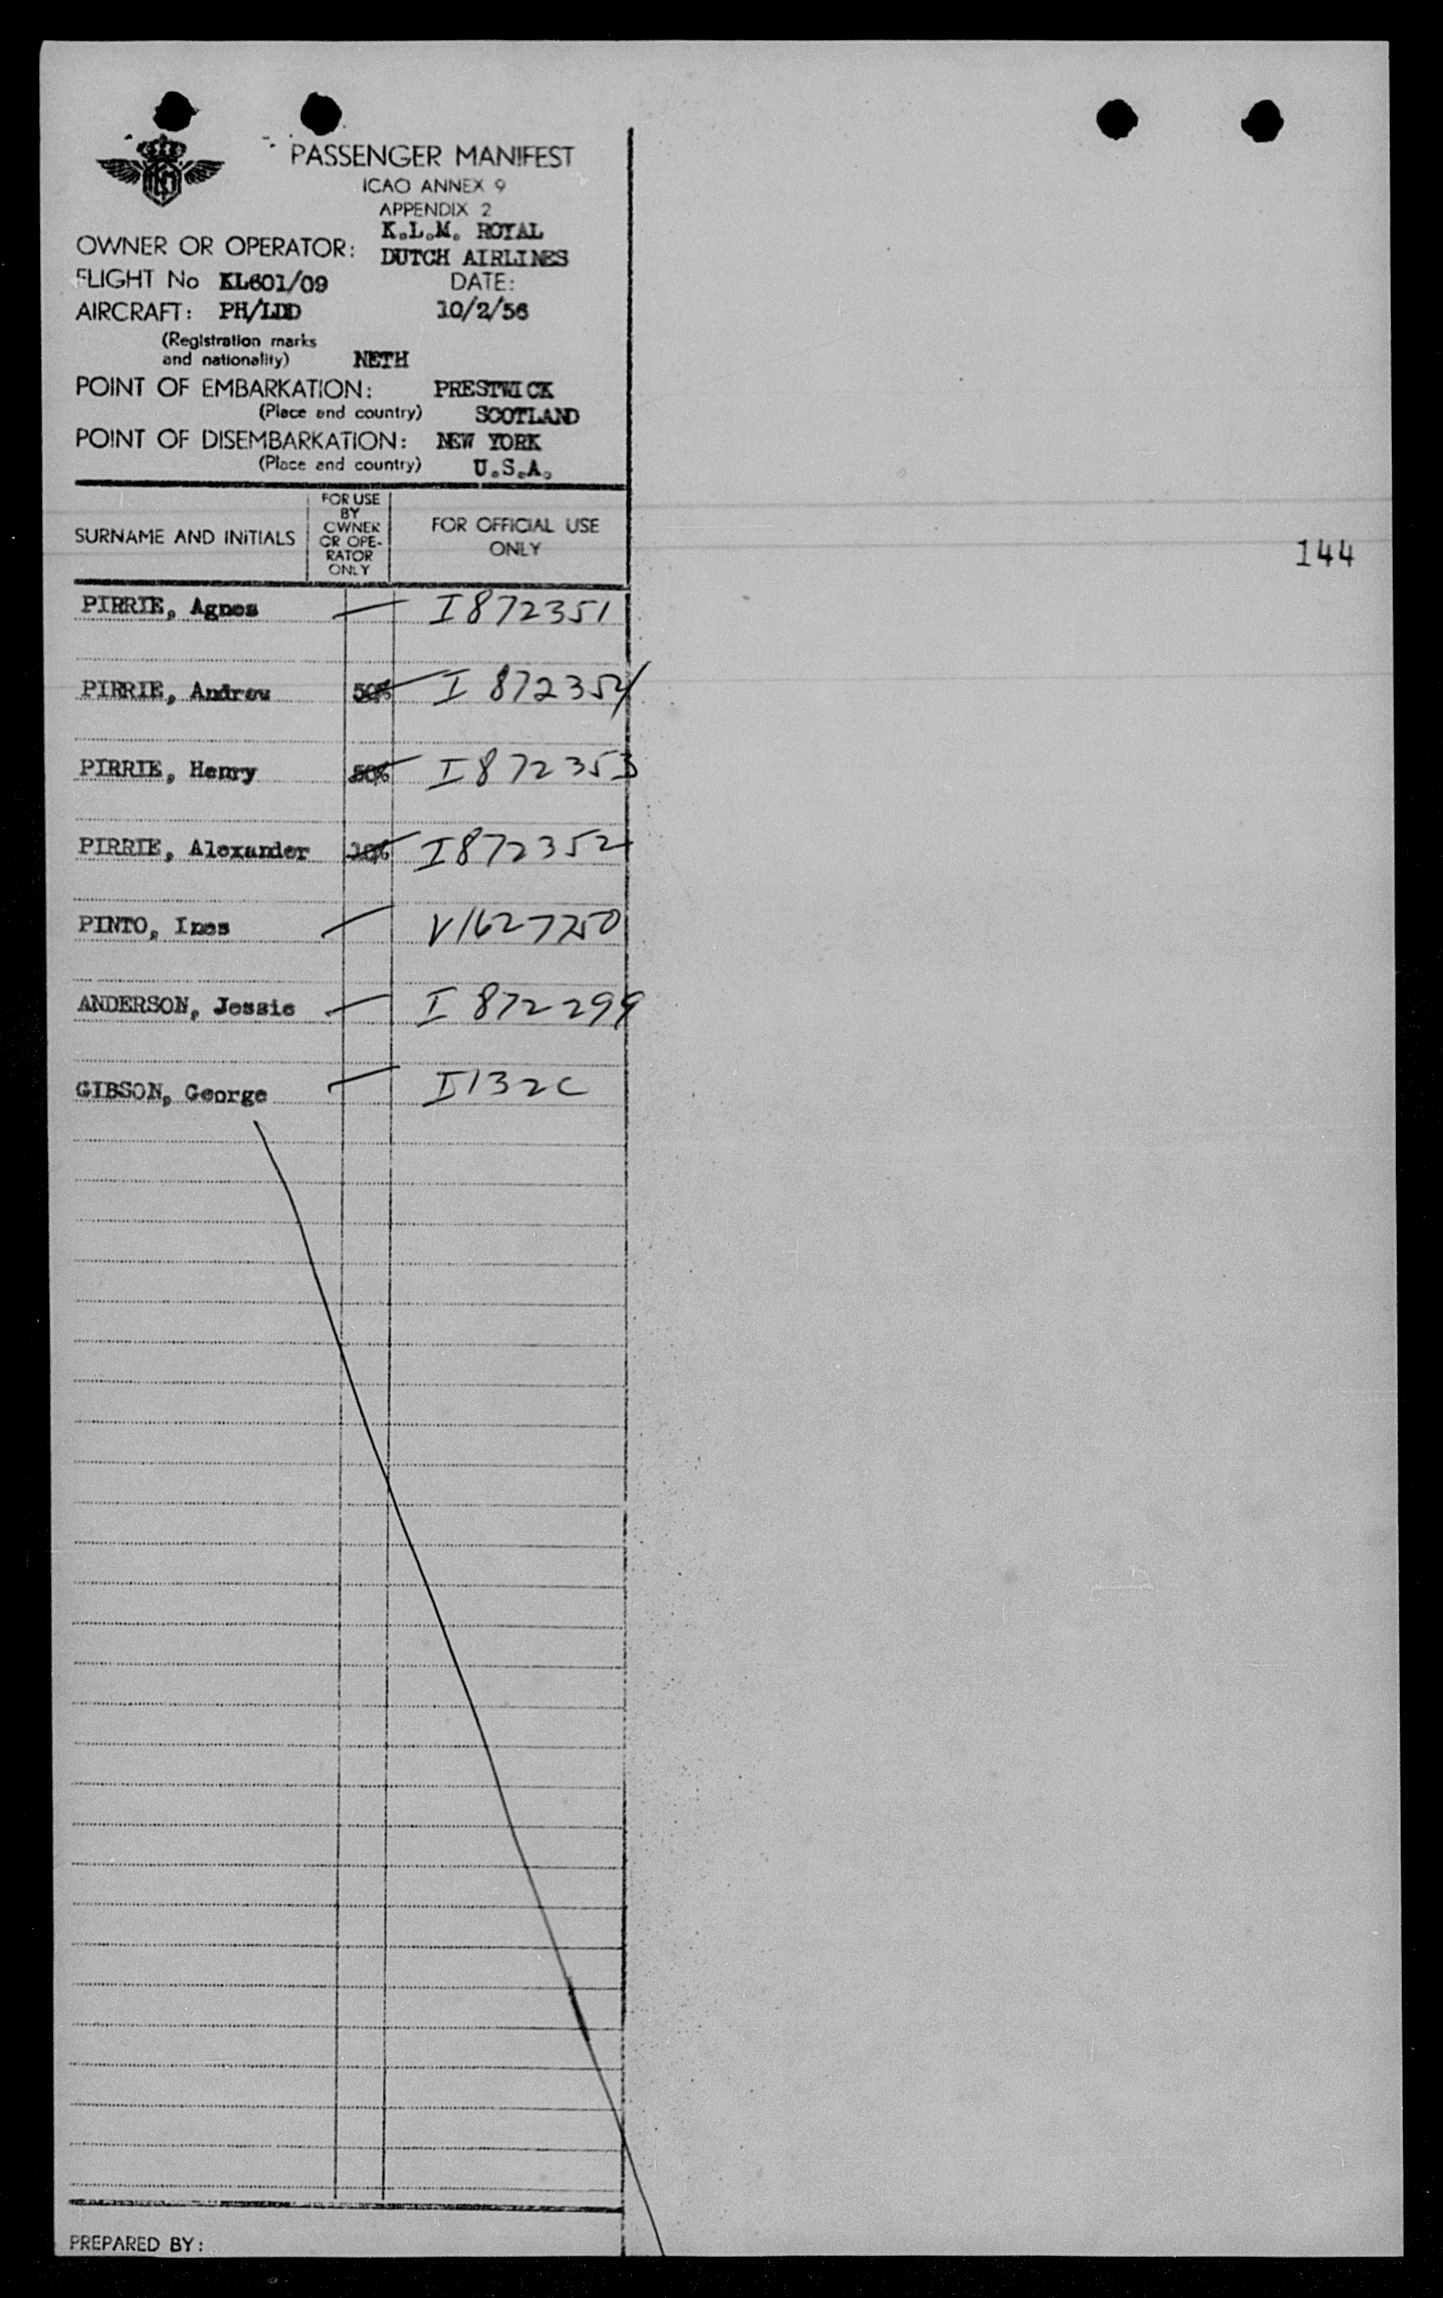 PASSENGER MANIFEST
ICAO ANNEX 9
APPENDIX 2
OWNER OR OPERATOR: K.L.M. ROYAL
DUTCH AIRLINES
FLIGHT No KL601/09 DATE:
AIRCRAFT: PH/LDD 10/2/56
(Registration marks
and nationality) NETH
POINT OF EMBARKATION: PRESTWICK
(Place and country) SCOTLAND
POINT OF DISEMBARKATION: NEW YORK
(Place and country) U.S.A.
SURNAME AND INITIALS
FOR USE
BY
OWNER
OR OPE-
RATOR
ONLY
FOR OFFICIAL USE
ONLY
144
PIRRIE, Agnes I872351
PIRRIE, Andrew 50% I 872354
PIRRIE, Henry 50% I872353
PIRRIE, Alexander 10% I872352
PINTO, Ines V1627750
ANDERSON, Jessie I 872299
GIBSON, George I132C
PREPARED BY: